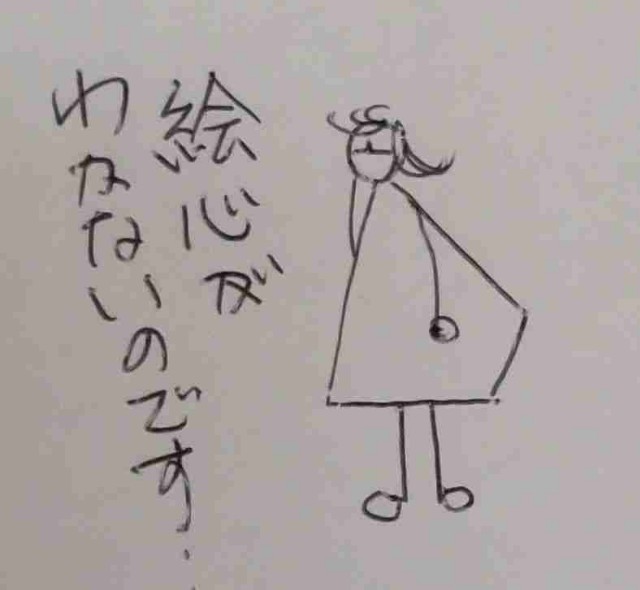 絵心が
わかないのです.